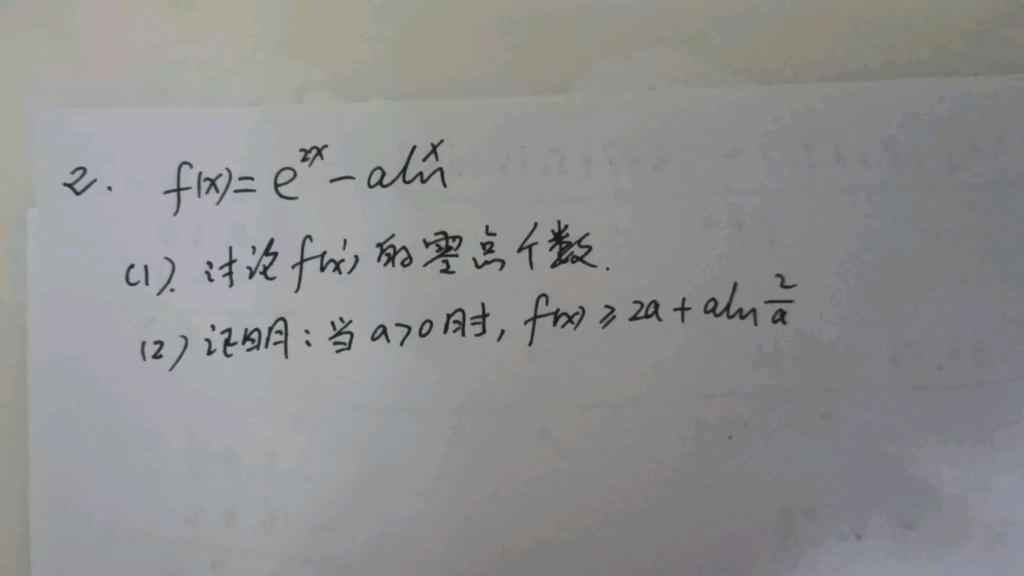 2. f(x)=e^{2x}-aln^{x}
(1). 讨论f(x)'的零点个数.
(2) 证明:当a>0时, f(x)≥2a+aln\frac{2}{a}